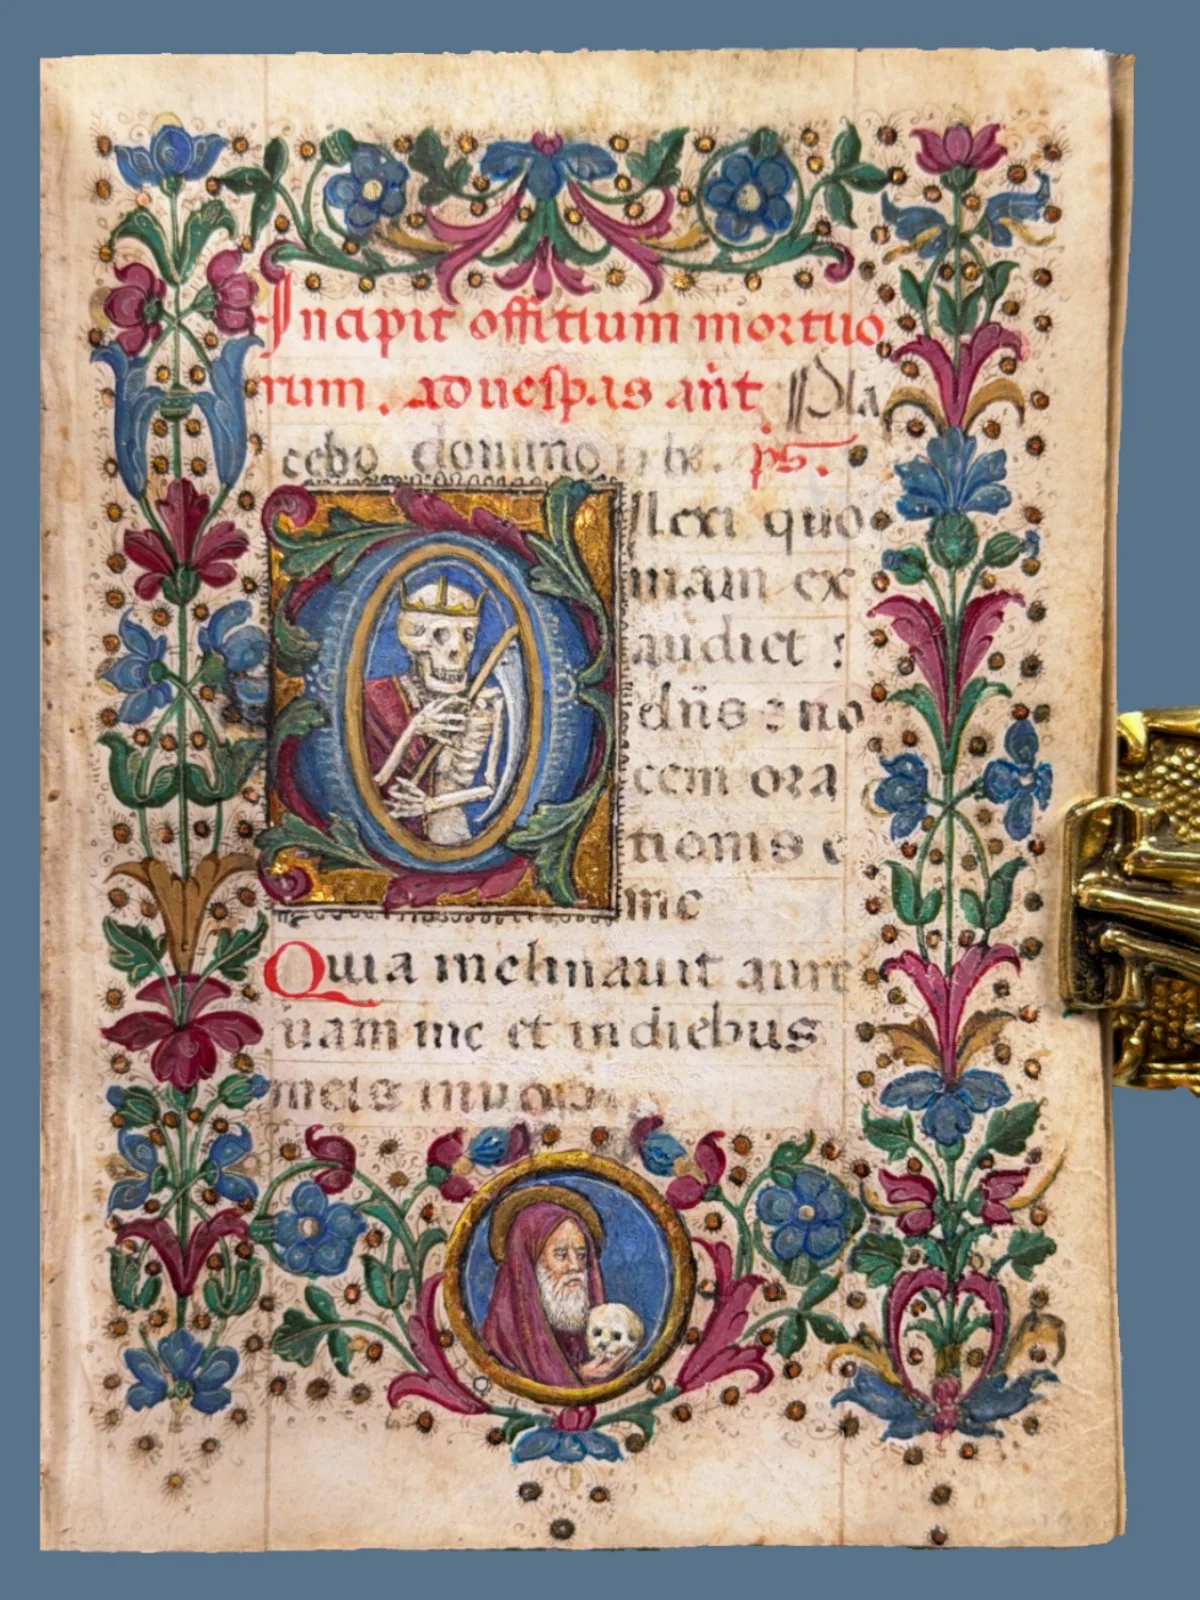 Incipit offitium mortuo
rum. ad uesp̱as añt Pla
cebo domino ps.
Dilexi quo
niam ex
audiet :
dn̄s : uo
cem ora
tionis e
me
Quia inclinauit aure
uam me et in diebus
meis inuoca